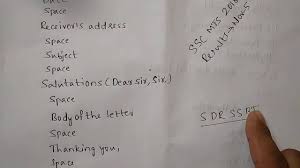 Date
Space
Receiver's address
Space
Subject
Space
Salutations (Dear sir, Sir,)
Space
Body of the letter
Space
Thanking you,
Space
SSC MTS
S D R S S B T